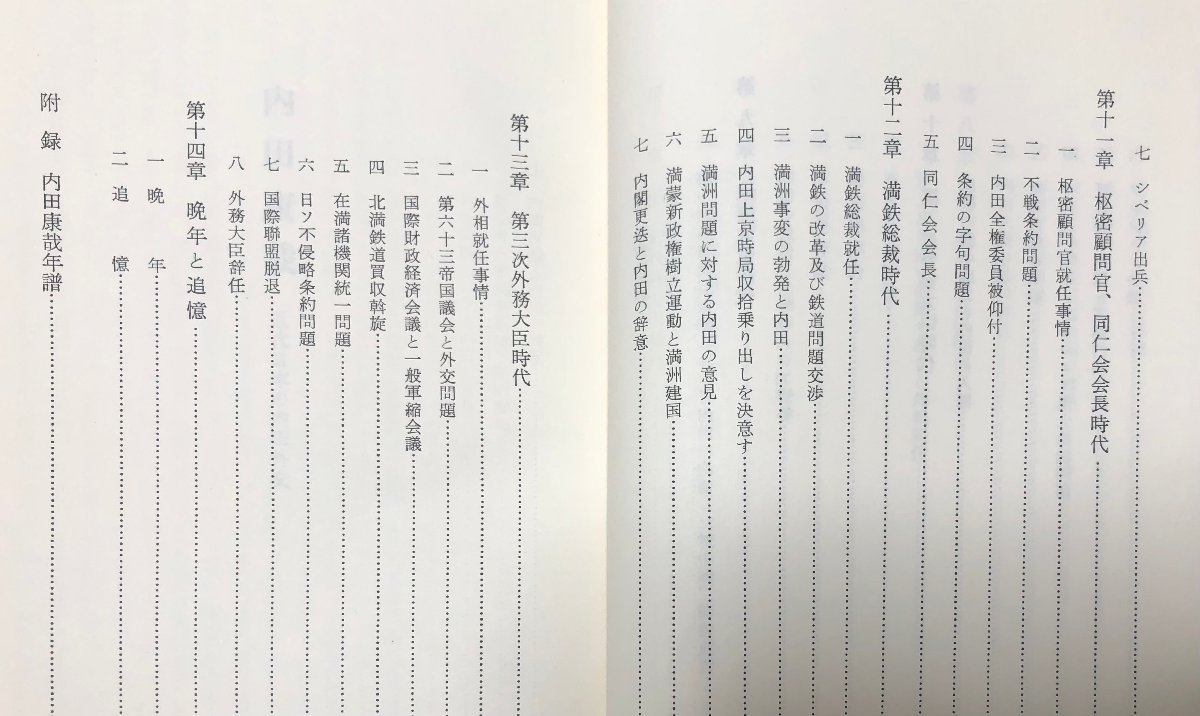 七 シベリア出兵
第十一章 枢密顧問官、同仁会会長時代
一 枢密顧問官就任事情
二 不戦条約問題
三 内田全権委員被仰付
四 条約の字句問題
五 同仁会会長
第十二章 満鉄総裁時代
一 満鉄総裁就任
二 満鉄の改革及び鉄道問題交渉
三 満洲事変の勃発と内田
四 内田上京時局収拾乗り出しを決意す
五 満洲問題に対する内田の意見
六 満蒙新政権樹立運動と満洲建国
七 内閣更迭と内田の辞意
第十三章 第三次外務大臣時代
一 外相就任事情
二 第六十三帝国議会と外交問題
三 国際財政経済会議と一般軍縮会議
四 北満鉄道買収斡旋
五 在満諸機関統一問題
六 日ソ不侵略条約問題
七 国際聯盟脱退
八 外務大臣辞任
第十四章 晩年と追憶
一 晩年
二 追憶
附録 内田康哉年譜